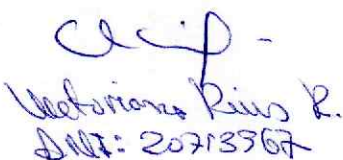 Victoriano Rivas R.
DNI: 20713967